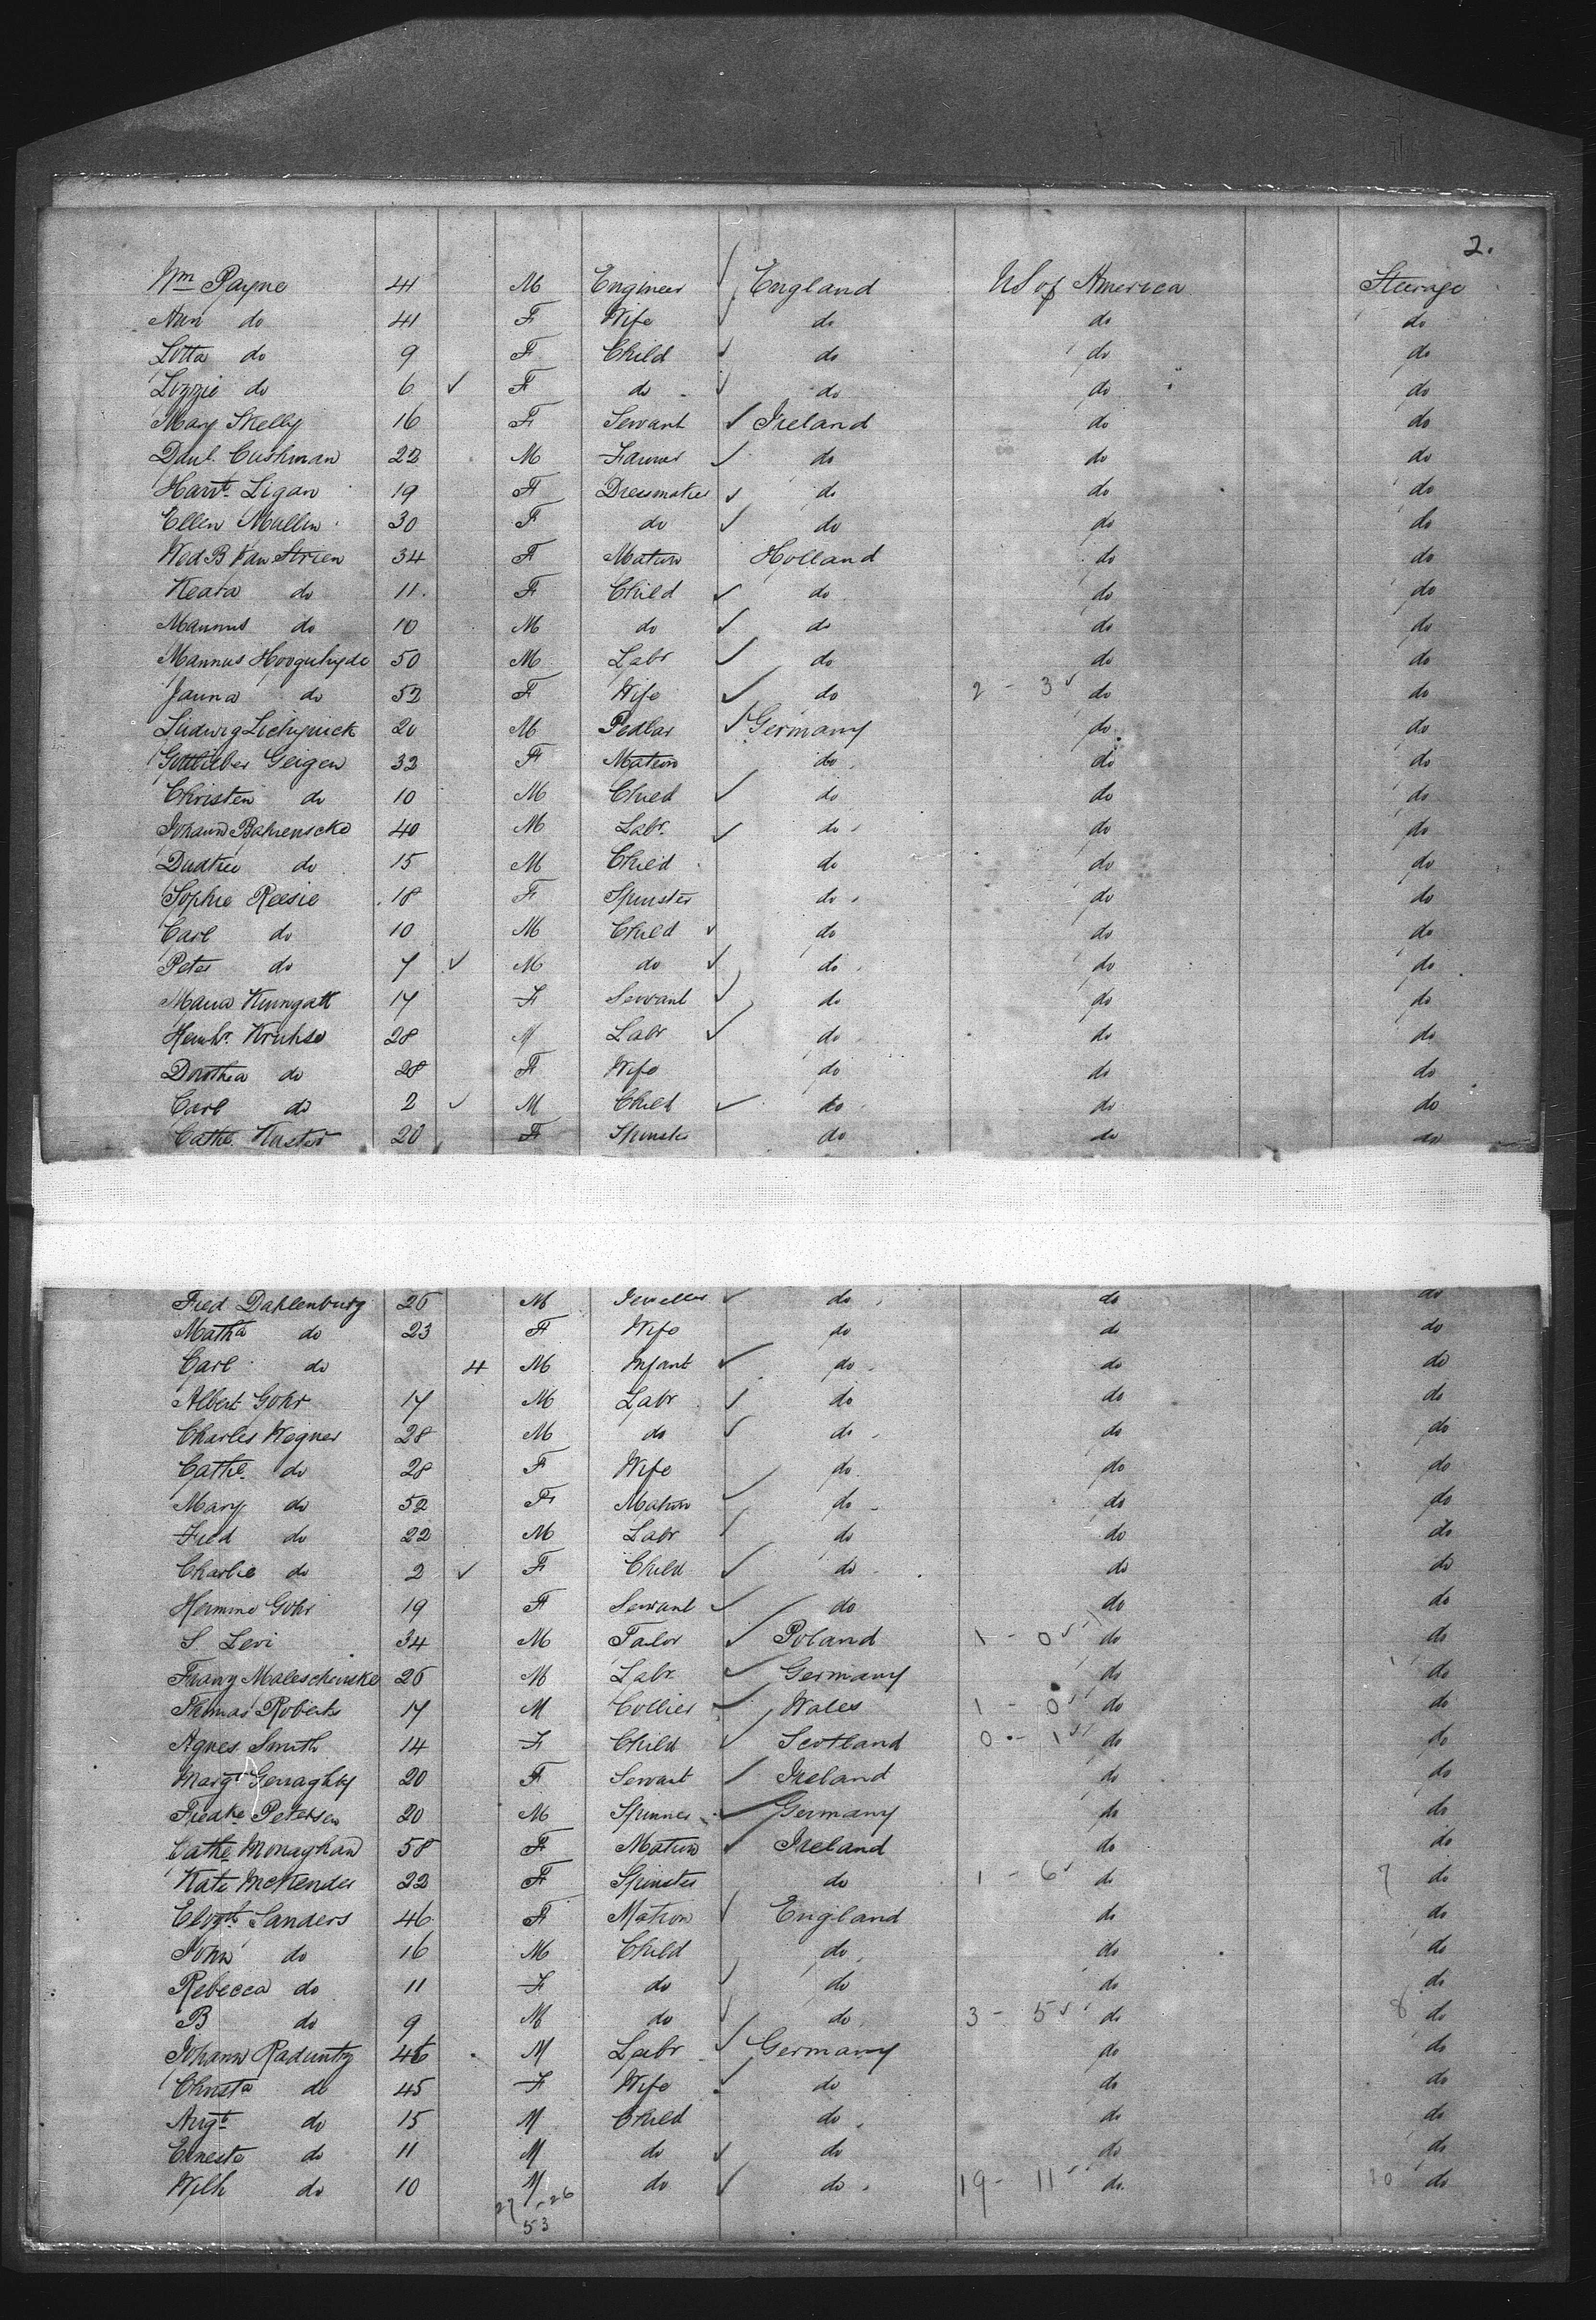 2.
Wm Payne 41 M Engineer England US of America Steerage
Ann do 41 F Wife do do do
Lotta do 9 F Child do do do
Lizzie do 6 F do do do do
Mary Skelly 16 F Servant Ireland do do
Danl. Cushman 22 M Farmer do do do
Harrt. Ligan 19 F Dressmaker do do do
Ellen Mullen 30 F do do do do
Wed B Van Strien 34 F Matron Holland do do
Keara do 11 F Child do do do
Mannus do 10 M do do do do
Mannus Hooguhyde 50 M Labr do do do
Janna do 52 F Wife do 2 - 3 do do
Ludwig 20 M Pedlar Germany do do
Gottlieber Geigen 32 F Matron do do do
Christen do 10 M Child do do do
Johann Bahrenscke 40 M Labr. do do do
do 15 M Child do do do
Sophie Reesie 18 F Spinster do do do
Carl do 10 M Child do do do
Peter do 7 M do do do do
Maria Kumgatt 17 F Servant do do do
Heinhr. Kruhse 28 M Labr do do do
Dorothea do 28 F Wife do do do
Carl do 2 M Child do do do
Cathe. Kuster 20 F Spinster do do do
Fred Dahlenburg 26 M Jeweller do do do
Matha do 23 F Wife do do do
Carl do 4 M Infant do do do
Albert Gohr 17 M Labr do do do
Charles Wegner 28 M do do do do
Cathe. do 28 F Wife do do do
Mary do 52 F Matron do do do
Fred do 22 M Labr do do do
Charlie do 2 F Child do do do
Hermine Gohr 19 F Servant do do do
S Levi 34 M Tailor Poland 1 - 0 do do
Franz Maleschewske 26 M Labr. Germany do do
Thomas Roberts 17 M Collier Wales 1 - 0 do do
Agnes Smith 14 F Child Scotland 0 - 1 do do
Margt Gerraghty 20 F Servant Ireland do do
Fredke Petersen 20 M Spinner Germany do do
Cathe Monaghan 58 F Matron Ireland do do
Kate McKender 22 F Spinster do 1 - 6 do 7 do
Elizth Sanders 46 F Matron England do do
John do 16 M Child do do do
Rebecca do 11 F do do do do
B do 9 M do do 3 - 5 do 8 do
Johann Raduntz 46 M Labr Germany do do
Christa do 45 F Wife do do do
Augt do 15 M Child do do do
Erneste do 11 M do do do do
Wilh do 10 M do do 19 - 11 do 30 do
27 - 26
53